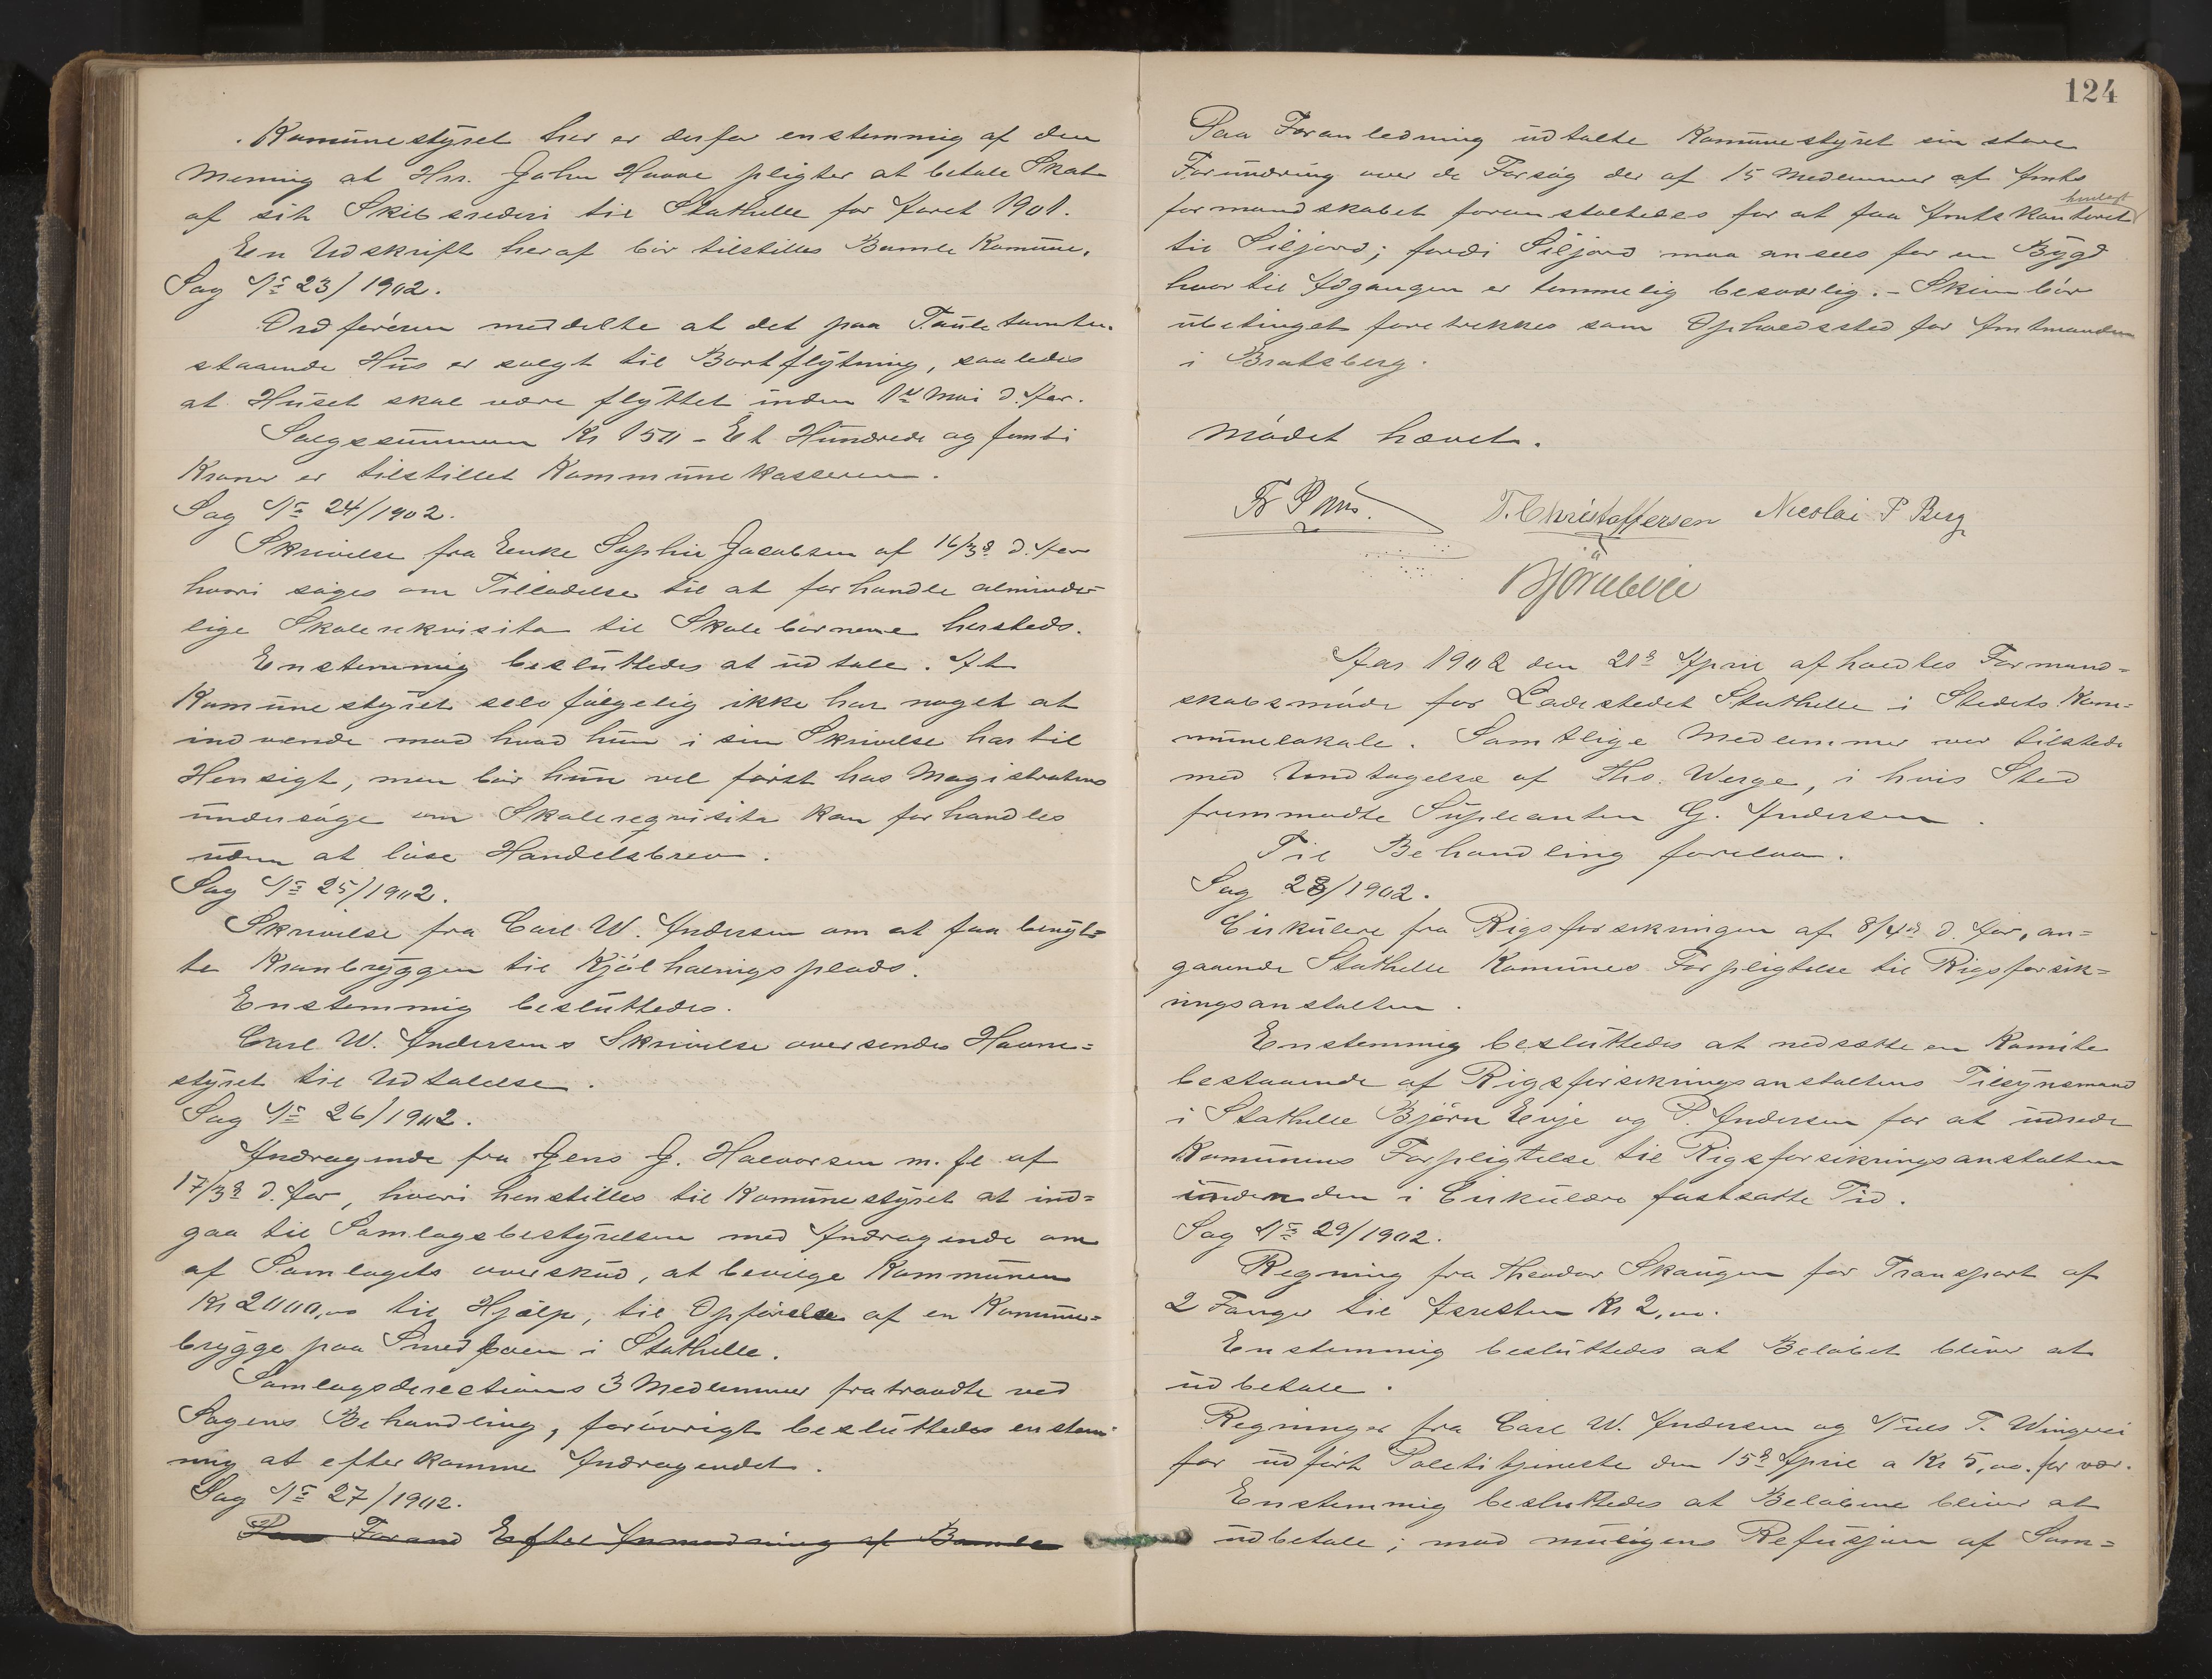 Komunestyret her er derfor enstemmig af den
Mening at Hrr. John Hovve pligter at betale Skat
af sit Skibsrederi til Stathelle for Aaret 1901.
En Udskrift heraf bør tilstilles Bamle Komune.
Sag No 23/1902.
Ordføreren meddelte at det paa Tauletomten
staaende Hus er solgt til Bortflytning, saaledes
at Huset skal være flyttet inden 1ste Mai d. Aar.
Salgssummen Kr 150 - Et Hundrede og femti
Kroner er tilstillet Kommunekasseren.
Sag No 24/1902.
Skrivelse fra Enke Sophie Jacobsen af 16/3 d. Aar
hvori søges om Tilladelse til at forhandle alminde-
lige Skolerekvisita til Skolebørnene hersteds.
Enstemmig besluttedes at udtale. At
Komunestyret selvfølgelig ikke har noget at
indvende mod hvad hun i sin Skrivelse har til
Hensigt, men bør hun vel først hos Magistraten
undersøge om Skolereqvisita kan forhandles
uden at løse Handelsbrev.
Sag No 25/1902.
Skrivelse fra Carl W. Andersen om at faa benyt-
te Kranbryggen til Kjølhalingsplads.
Enstemmig besluttedes.
Carl W. Andersens Skrivelse oversendes Havne-
styret til Udtalelse.
Sag No 26/1902.
Andragende fra Jens J. Halvorsen m. fl af
17/3 d. Aar, hvori henstilles til Komunestyret at ind-
gaa til Samlagsbestyrelsen med Andragende om
af Samlagets overskud, at bevilge Kommunen
Kr 2000,00 til Hjælp, til Opførelse af en Komune-
brygge paa Smedhoen i Stathelle.
Samlagsdirectiones 3 Medlemmer fratraadte ved
Sagens Behandling, forøvrigt besluttedes enstem-
mig at efterkomme Andragendet.
Sag No 27/1902.
Paa Foran Efter Anmodning af Bamle
124
Paa Foranledning udtalte Komunestyret sin store
Forundring over de Forsøg der af 15 Medlemmer af Amts
formandskabet foranstaltedes for at faa Amtskontoret henlagt
til Siljord; fordi Siljord maa ansees for en Bygd
hvortil Adgangen er temmelig besværlig. - Skien bør
ubetinget foretrekkes som Opholdssted for Amtmanden
i Bratsberg.
Mødet hævet.
T. Christoffersen Nicolai P Berg
Bjørn Evje
Aar 1902 den 21de April afholdtes Formand-
skabsmøde for Ladestedet Stathelle i Stedets Kom-
munelokale. Samtlige Medlemmer var tilstede
med Undtagelse af Ths. Werge, i hvis Sted
fremmødte Supleanten G. Andersen.
Til Behandling forelaa.
Sag 28/1902.
Cirkulære fra Rigsforsikringen af 8/4 d. Aar, an-
gaaende Stathelle Komunes Forpligtelse til Rigsforsik-
ringsanstalten.
Enstemmig besluttedes at nedsætte en Komite
bestaaende af Rigsforsikringsanstaltens Tilsynsmand
i Stathelle Bjørn Evje og P. Andersen for at udrede
Komunens Forpligtelse til Rigsforsikringsanstalten
inden den i Cirkulære fastsatte Tid.
Sag No 29/1902.
Regning fra Theodor Skaugen for Transport af
2 Fanger til Arresten Kr 2,00.
Enstemmig besluttedes at Beløbet bliver at
udbetale.
Regninger fra Carl W. Andersen og Niels T. Wingrei
for udført Politstjeneste den 15de April a Kr 5,00. for vær.
Enstemmig besluttedes at Beløbene bliver at
udbetale; mod muligens Refusjon af Sam-